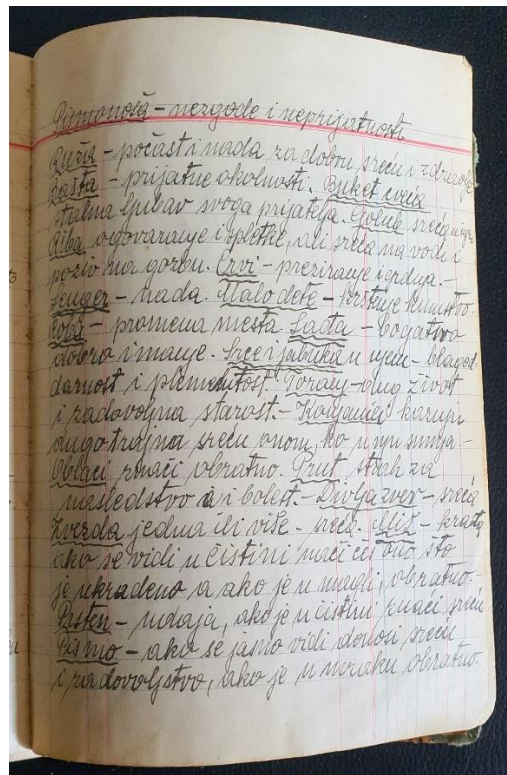 Pismonoša - nezgode i neprijatnosti
Ruža - počast i nada za dobru sreću i zdravlje
Bašta - prijatne okolnosti. Buket cveća
stalna ljubav svoga prijatelja. Golub sreća u
Riba ogovaranje i spletke, ili sreća na vodi i
poziv na gozbu. Crvi - preziranje i grdnja.
- nada. Malo dete - krštenje kumstvo.
Roba - promena mesta. Lađa - bogatstvo
dobro imanje. Srce i jabuka u njem - blagod-
darnost i plemenitost. Toranj - dug život
i zadovoljna starost. - karupi
dugotrajna sreću onom, ko u nju sumnja -
Oblaci znači obratno. Prut strah za
nasledstvo a i bolest. - Divlja zver - sreća
Zvezda jedna ili više - sreća. Miš - krađa
ako se vidi u čistini naći ćeš ono što
je ukradeno a ako je u magli, obratno. -
Prsten - udaja, ako je u čistini znači sreću
Pismo - ako se jasno vidi donosi sreću
i zadovoljstvo, ako je u mraku obratno.